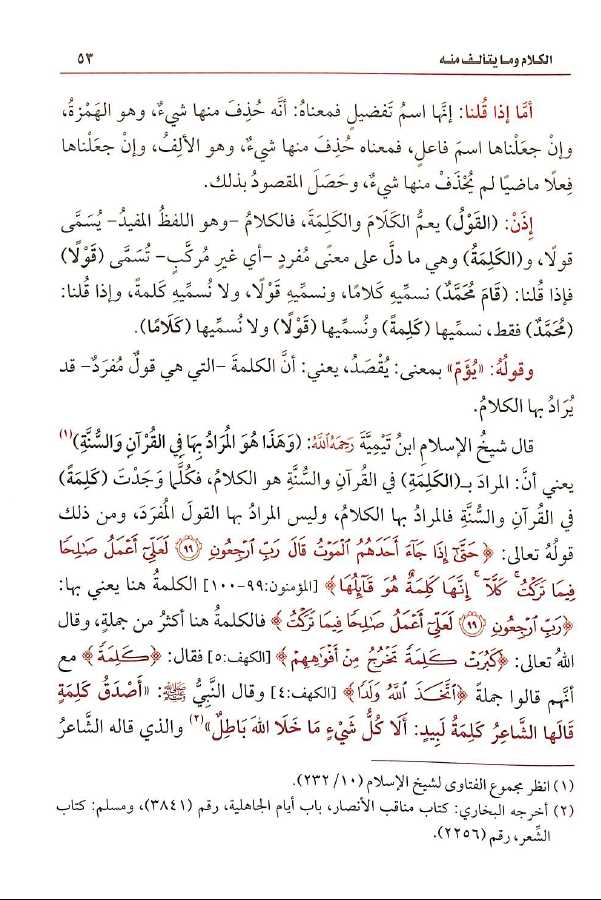 الكلام وما يتألف منه ٥٣
أمَّا إذا قُلنا: إنَّها اسمُ تَفضيلٍ فمعناهُ: أنَّه حُذِفَ منها شيءٌ، وهو الهَمْزةُ،
وإنْ جعَلْناها اسمَ فاعلٍ، فمعناه حُذِفَ منها شيءٌ، وهو الألِفُ، وإنْ جعَلْناها
فِعلًا ماضيًا لم يُحْذَفْ منها شيءٌ، وحَصَلَ المقصودُ بذلك.
إِذَنْ: (القَوْلُ) يعمُّ الكَلَامَ والكَلِمَةَ، فالكلامُ -وهو اللفظُ المفيدُ- يُسَمَّى
قولًا، و(الكَلِمَةُ) وهي ما دلَّ على معنًى مُفردٍ -أي غيرِ مُركَّبٍ- تُسَمَّى (قَوْلًا)
فإذا قُلنا: (قَامَ مُحَمَّدٌ) نسمِّيهِ كَلامًا، ونسمِّيهِ قَوْلًا، ولا نُسمِّيهِ كلمةً، وإذا قُلنا:
(مُحَمَّدٌ) فقط، نسمِّيها (كَلِمةً) ونُسمِّيها (قَوْلًا) ولا نُسمِّيها (كَلَامًا).
وقولُهُ: «يُؤَمّ» بمعنى: يُقْصَدُ، يعني: أنَّ الكلمةَ -التي هي قولٌ مُفرَدٌ- قد
يُرَادُ بها الكلامُ.
قال شيخُ الإسلامِ ابنُ تَيْمِيَّةَ رَحِمَهُ اللَّهُ: (وَهَذَا هُوَ المُرَادُ بِهَا فِي القُرْآنِ وَالسُّنَّةِ)(١)
يعني أنَّ: المرادَ بـ(الكَلِمَةِ) في القُرآنِ والسُّنَّةِ هو الكلامُ، فكُلَّما وَجَدْتَ (كَلِمَةً)
في القُرآنِ والسُّنَّةِ فالمرادُ بها الكلامُ، وليس المرادُ بها القولَ المُفرَدَ، ومن ذلك
قولُهُ تعالى: ﴿حَتَّىٰٓ إِذَا جَآءَ أَحَدَهُمُ ٱلْمَوْتُ قَالَ رَبِّ ٱرْجِعُونِ ۝٩٩ لَعَلِّىٓ أَعْمَلُ صَٰلِحًا
فِيمَا تَرَكْتُ ۚ كَلَّآ ۚ إِنَّهَا كَلِمَةٌ هُوَ قَآئِلُهَا﴾ [المؤمنون:٩٩-١٠٠] الكلمةُ هنا يعني بها:
﴿رَبِّ ٱرْجِعُونِ ۝٩٩ لَعَلِّىٓ أَعْمَلُ صَٰلِحًا فِيمَا تَرَكْتُ﴾ فالكلمةُ هنا أكثرُ من جملةٍ، وقال
اللهُ تعالى: ﴿كَبُرَتْ كَلِمَةً تَخْرُجُ مِنْ أَفْوَٰهِهِمْ﴾ [الكهف:٥] فقال: ﴿كَلِمَةً﴾ مع
أنَّهم قالوا جملةً ﴿ٱتَّخَذَ ٱللَّهُ وَلَدًا﴾ [الكهف:٤] وقال النَّبيُّ ﷺ: «أَصْدَقُ كَلِمَةٍ
قَالَها الشَّاعِرُ كَلِمَةُ لَبِيدٍ: أَلَا كُلُّ شَيْءٍ مَا خَلَا اللهَ بَاطِلٌ»(٢) والذي قاله الشَّاعرُ
(١) انظر مجموع الفتاوى لشيخ الإسلام (١٠/ ٢٣٢).
(٢) أخرجه البخاري: كتاب مناقب الأنصار، باب أيام الجاهلية، رقم (٣٨٤١)، ومسلم: كتاب
الشِّعر، رقم (٢٢٥٦).